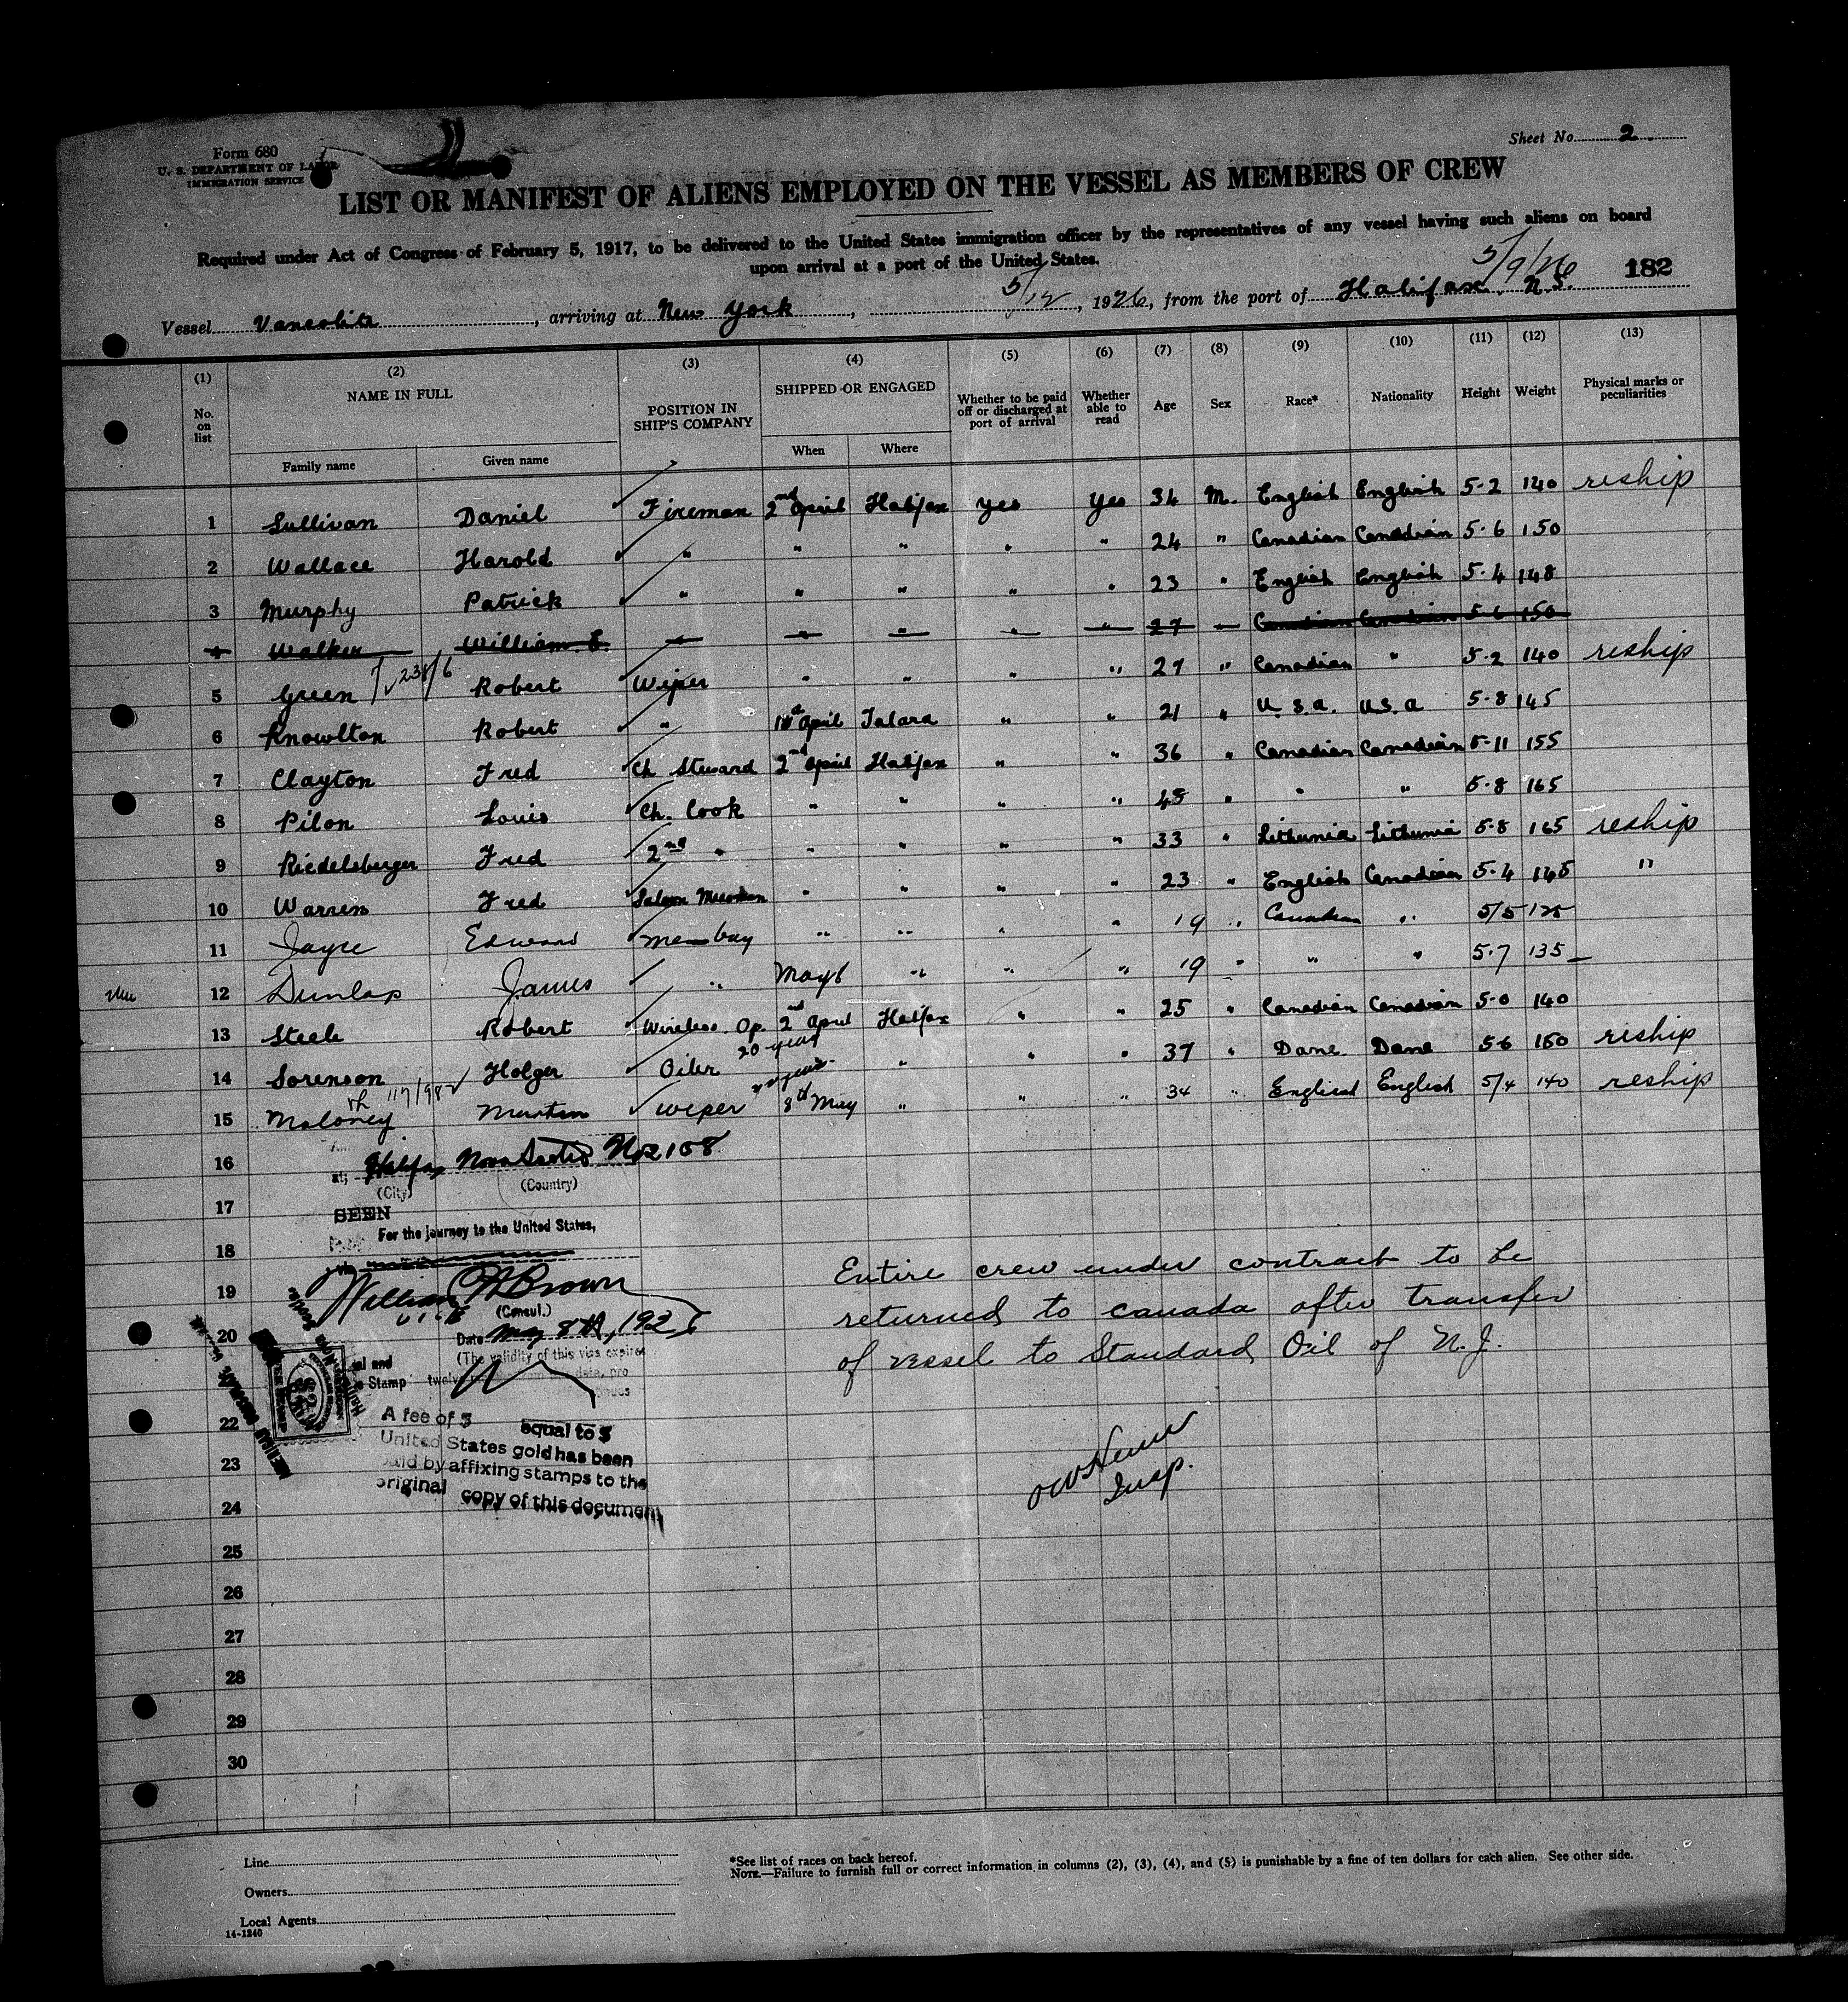 Sheet No. 2.
Form 680
U. S. DEPARTMENT OF LABOR
IMMIGRATION SERVICE
LIST OR MANIFEST OF ALIENS EMPLOYED ON THE VESSEL AS MEMBERS OF CREW
Required under Act of Congress of February 5, 1917, to be delivered to the United States immigration officer by the representatives of any vessel having such aliens on board
upon arrival at a port of the United States.
5/9/26 182
Vessel Vancolite, arriving at New York, 5/12, 1926, from the port of Halifax. N.S.
(1) (2) (3) (4) (5) (6) (7) (8) (9) (10) (11) (12) (13)
No. on list NAME IN FULL POSITION IN SHIP'S COMPANY SHIPPED OR ENGAGED Whether to be paid off or discharged at port of arrival Whether able to read Age Sex Race* Nationality Height Weight Physical marks or peculiarities
Family name Given name When Where
1 Sullivan Daniel Fireman 2nd April Halifax Yes Yes 34 M. English English 5-2 140 reship
2 Wallace Harold " " " " " 24 " Canadian Canadian 5-6 150
3 Murphy Patrick " " " " " 23 " English English 5-4 148
4 Walker William E. " " " " " 27 " Canadian Canadian 5-6 150
5 Green Robert Wiper " " " " 27 " Canadian " 5-2 140 reship
6 Knowlton Robert " April Talara " " 21 " U.S.A. U.S.A 5-8 145
7 Clayton Fred Ch Steward 2nd April Halifax " " 36 " Canadian Canadian 5-11 155
8 Pilon Louis Ch. Cook " " " " 45 " " " 5-8 165
9 Riedelsberger Fred 2nd " " " " " 33 " Lithunia Lithunia 5-8 165 reship
10 Warren Fred Saloon Messman " " " " 23 " English Canadian 5-4 145 "
11 Jayce Edward mess boy " " " " 19 " Canadian " 5/5 125
12 Dunlap James " May 8 " " " 19 " " " 5-7 135
13 Steele Robert Wireless Op. 2nd April Halifax " " 25 " Canadian Canadian 5-0 140
20 years
14 Sorenson Holger Oiler " " " 37 " Dane Dane 5-6 150 reship
15 Moloney Martin wiper 8th May " " " 34 " English English 5/4 140 reship
16
at; Halifax Nova Scotia No 2108
(City) (Country)
17
SEEN
For the journey to the United States,
18
19 William H Brown
(Consul.)
20 Date May 8th, 1926
(The validity of this visa expires
Entire crew under contract to be
returned to Canada after transfer
of vessel to Standard Oil of N.J.
22
A fee of $ equal to $
United States gold has been
23
paid by affixing stamps to the
original copy of this document
24
Insp.
25
26
27
28
29
30
Line
Owners
Local Agents
14-1240
*See list of races on back hereof.
NOTE.—Failure to furnish full or correct information in columns (2), (3), (4), and (5) is punishable by a fine of ten dollars for each alien. See other side.